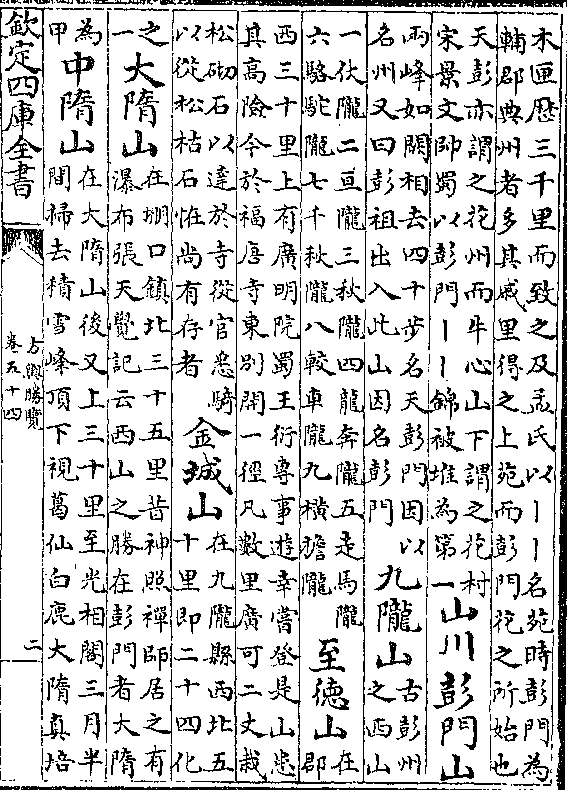 木匣歴三千里而致之及孟氏以丨丨名苑時彭門為
輔郡典州者多其戚里得之上苑而彭門花之所始也
天彭亦謂之花州而牛心山下謂之花村
宋景文帥蜀以彭門丨丨錦被堆為第一
山川彭門山
兩峰如闕相去四十步名天彭門因以
名州又曰彭祖出入此山因名彭門
九隴山
古彭州
之西山
一伏隴二亘隴三秋隴四龍奔隴五走馬隴
六駱駝隴七千秋隴八較車隴九横擔隴
至德山
在
郡
西三十里上有廣明院蜀王衍専事遊幸嘗登是山患
真高險今於福唐寺東別開一徑凡數里廣可二丈栽
松砌石以達於寺從官悉騎
以從松枯石怪尚有存者
金城山
在九隴縣西北五
十里即二十四化
之
一
大隋山
在堋口鎮北三十五里昔神照禪師居之有
瀑布張天覺記云西山之勝在彭門者大隋
為
甲
中隋山
在大隋山後又上三十里至光相閣三月半
間掃去積雪峰頂下視葛仙白鹿大隋真培
欽定四庫全書
方輿勝覽
卷五十四
二